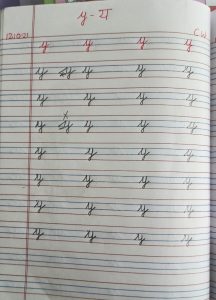 y - य
12.10.21 C.W
y y y y
y y y y y
y y y y
y y y y y
y y y y
y y y y
y y y y
y y y y